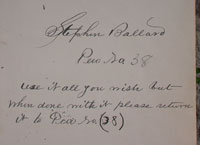 Stephen Ballard
Pew No 38
use it all you wish but
when done with it please return
it to Pew No (38)